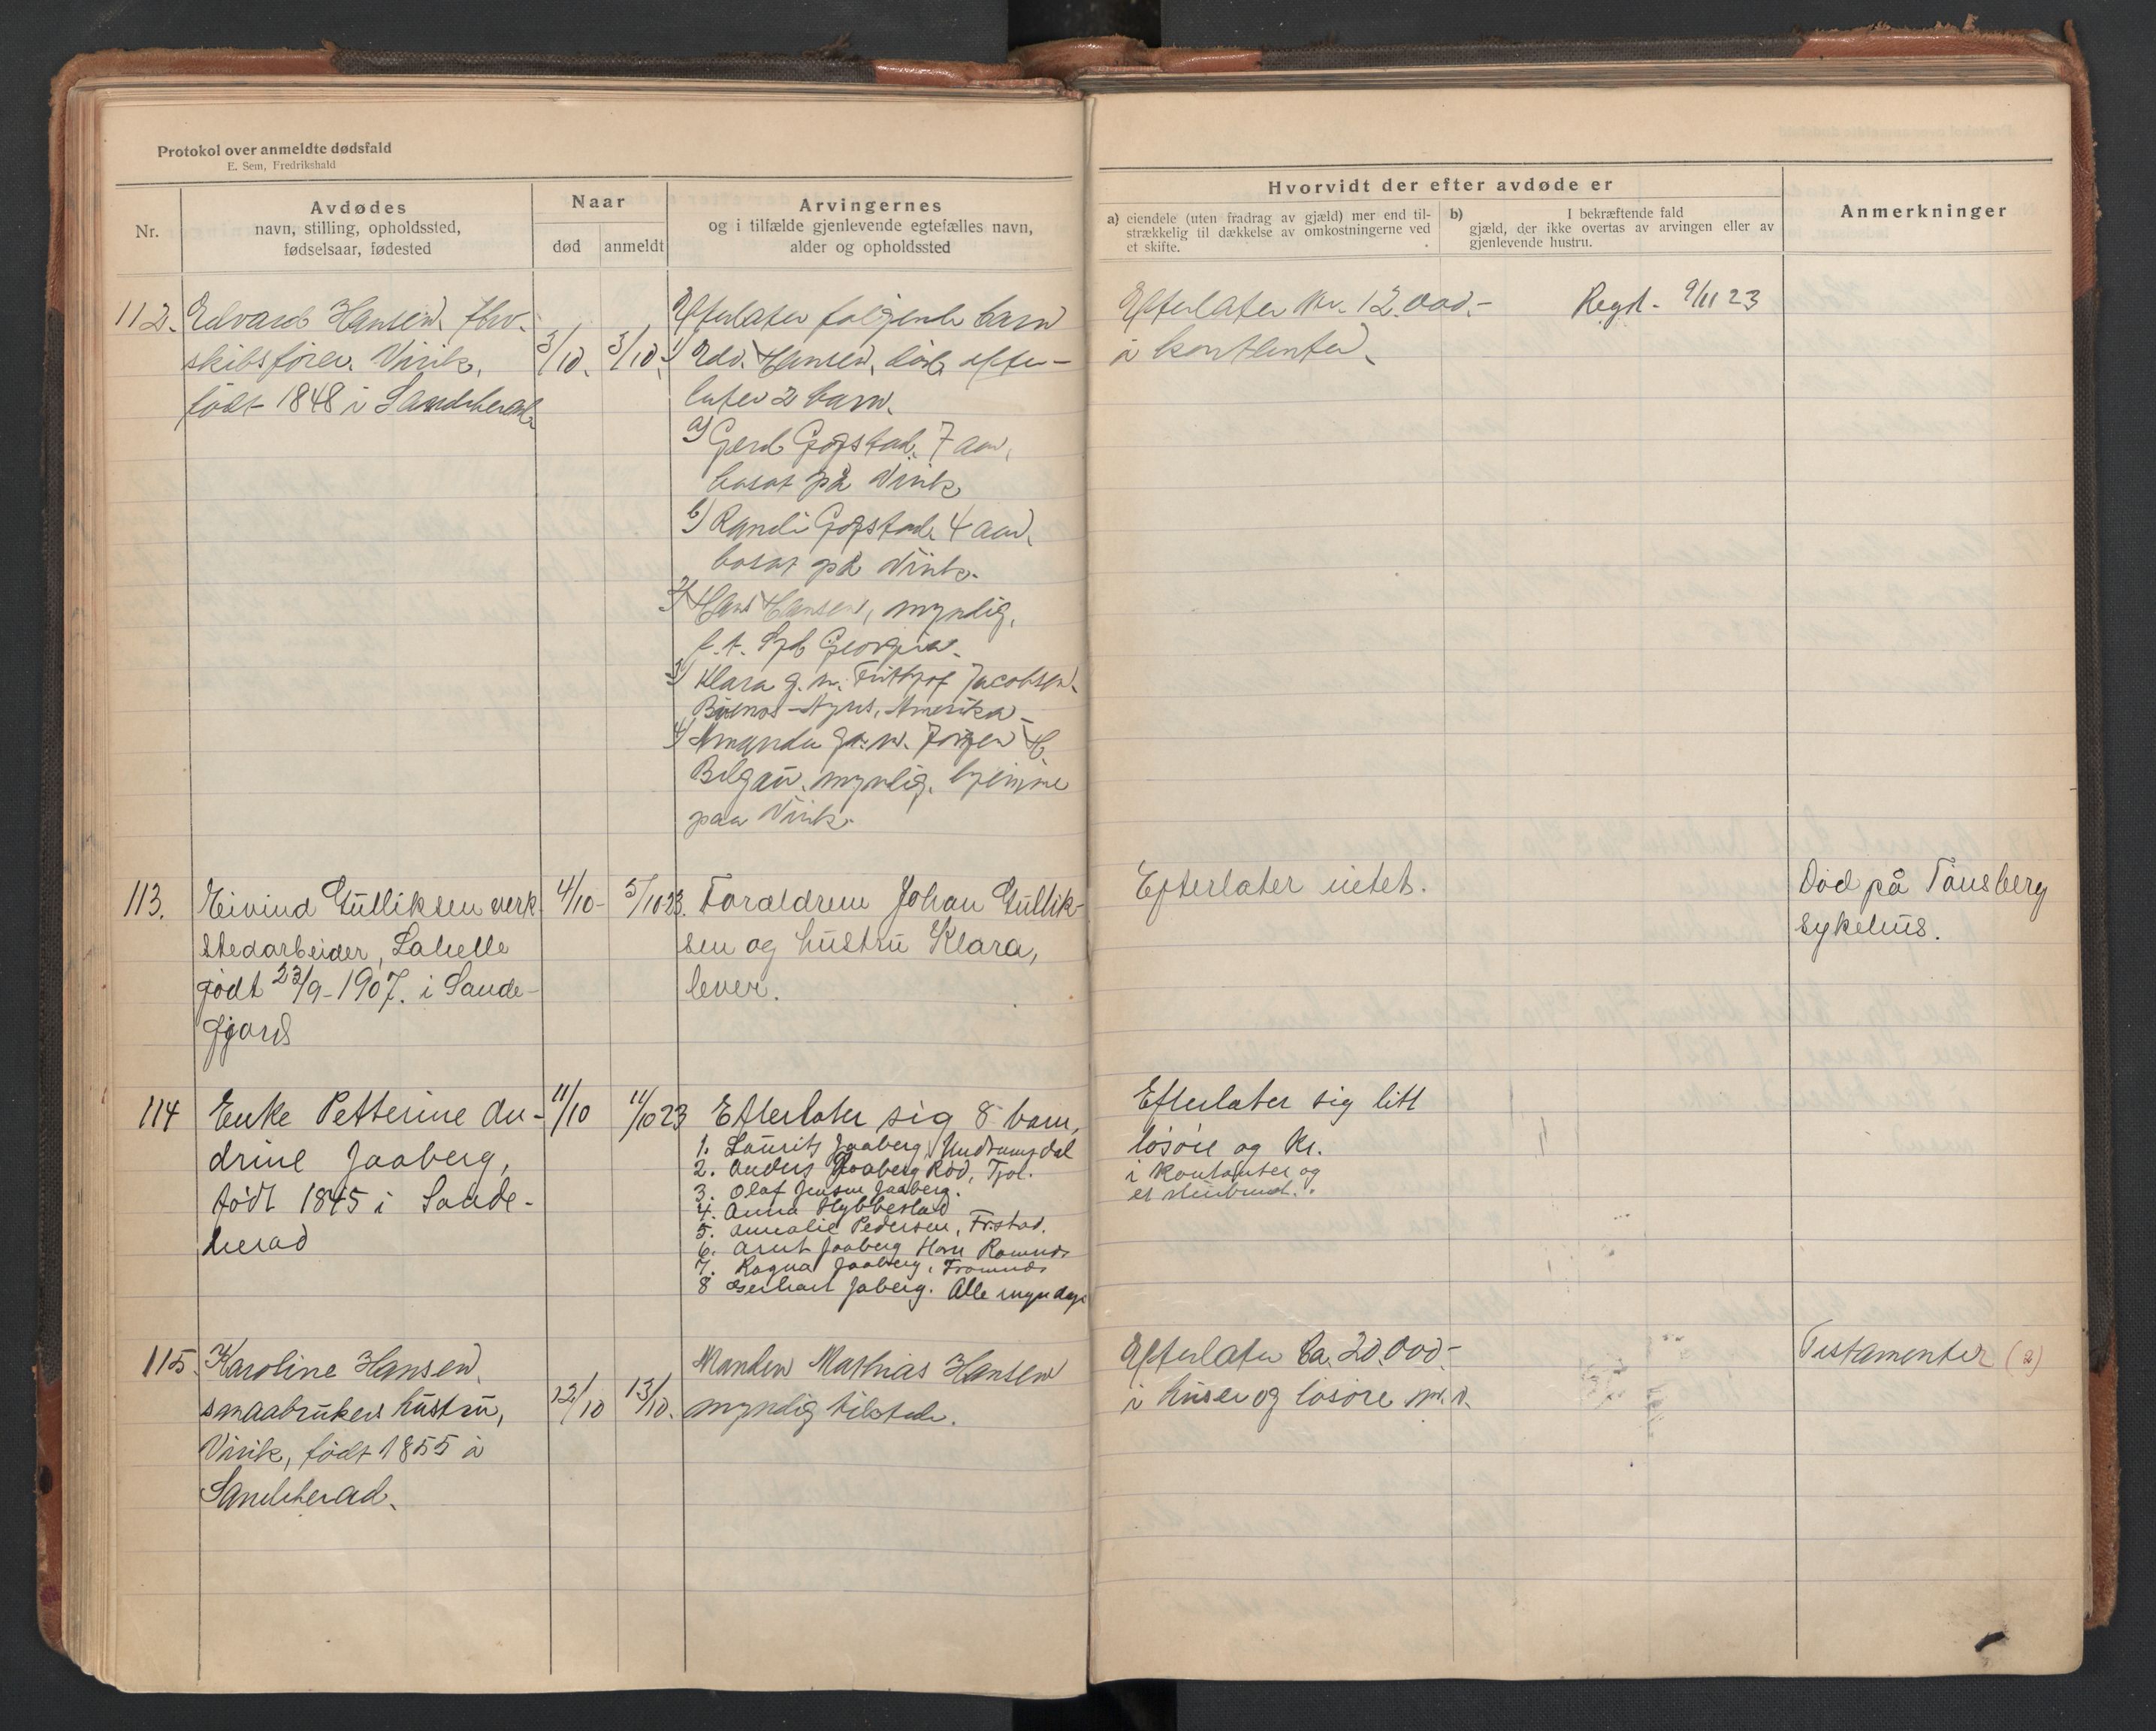 Protokol over anmeldte dødsfald
E. Sem, Fredrikshald
Nr.
Avdødes
navn, stilling, opholdssted,
fødselsaar, fødested
Naar
død
anmeldt
Arvingernes
og i tilfælde gjenlevende egtefælles navn,
alder og opholdssted
Hvorvidt der efter avdøde er
a) eiendele (uten fradrag av gjæld) mer end til-
strækkelig til dækkelse av omkostningerne ved
et skifte.
b) I bekræftende fald
gjæld, der ikke overtas av arvingen eller av
gjenlevende hustru.
Anmerkninger
112. Edvard Hansen, fhv.
skibsfører. Virik,
født 1848 i Sandeherad
3/10. 3/10.
Efterlater følgende barn
1) Edv. Hansen, død, efter-
later 2 barn.
a) Gerd Gogstad. 7 aar,
bosat på Virik
b) Randi Gogstad. 4 aar.
bosat på Virik.
2) Hans Hansen, myndig,
f. t. Syd Georgia.
3) Klara g. m. Frithjof Jacobsen.
Buenos-Ayres, Amerika-
4) Amanda g. m. Jørgen H.
myndig. hjemme
paa Virik.
Efterlater Kr. 12.000.-
i kontanter.
Regd. 9/11 23
113. Eivind Gulliksen verk
stedarbeider, Labelle
født 23/9-1907. i Sande-
fjord
4/10- 5/10-23.
Forældrene Johan Gullik-
sen og hustru Klara,
lever.
Efterlater intet.
Død på Tønsberg
sykehus.
114 Enke Petterine An-
drine Jaaberg,
født 1845 i Sande-
herad
11/10 11/10 23
Efterlater sig 8 barn,
1. Laurits Jaaberg, Undrumsdal
2. Anders Jaaberg Rød, Tjøl.
3. Olaf Jensen Jaaberg.
4. Anna Hybbestad
5. Amalie Pedersen, Fr.stad.
6. Arnt Jaaberg Ramnes
7. Ragna Jaaberg,
8 Gerhart Jaberg. Alle myndige
Efterlater sig litt
løsøre og kr.
i kontanter og
et
115. Karoline Hansen.
smaabrukers hustru,
Virik, født 1855 i
Sandeherad.
12/10 13/10.
Manden Mathias Hansen
myndig tilstede.
Efterlater ca. 20.000.-
i huser og løsøre m. v.
Testamenter (2)